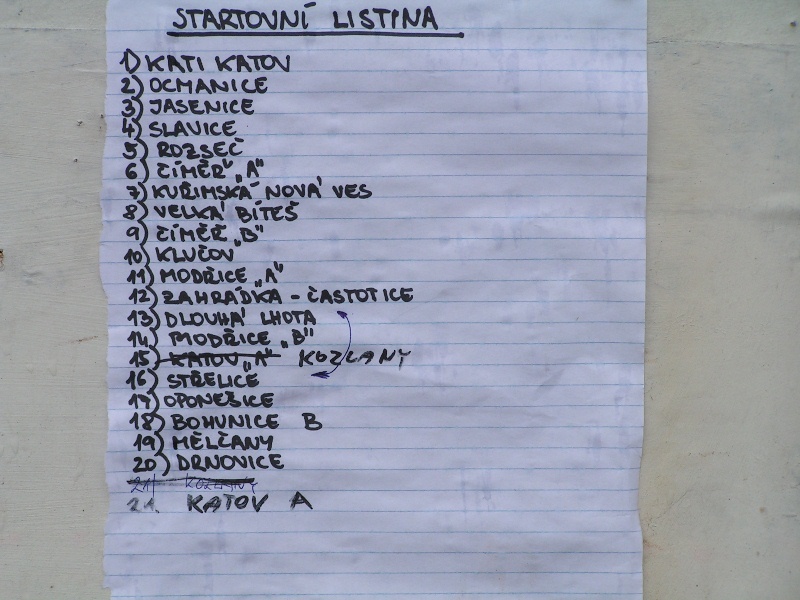 STARTOVNÍ LISTINA
1) KATI KATOV
2) OCMANICE
3) JASENICE
4) SLAVICE
5) ROZSEČ
6) ČÍMĚŘ „A"
7) KUŘIMSKÁ NOVÁ VES
8) VELKÁ BÍTEŠ
9) ČÍMĚŘ „B"
10) KLUČOV
11) MODŘICE „A"
12) ZAHRÁDKA - ČASTOTICE
13) DLOUHÁ LHOTA
14) MODŘICE „B"
15) KATOV „A" KOZLANY
16) STŘELICE
17) OPONEŠICE
18) BOHUNICE B
19) MĚLČANY
20) DRNOVICE
21) KOZLANY
21. KATOV A